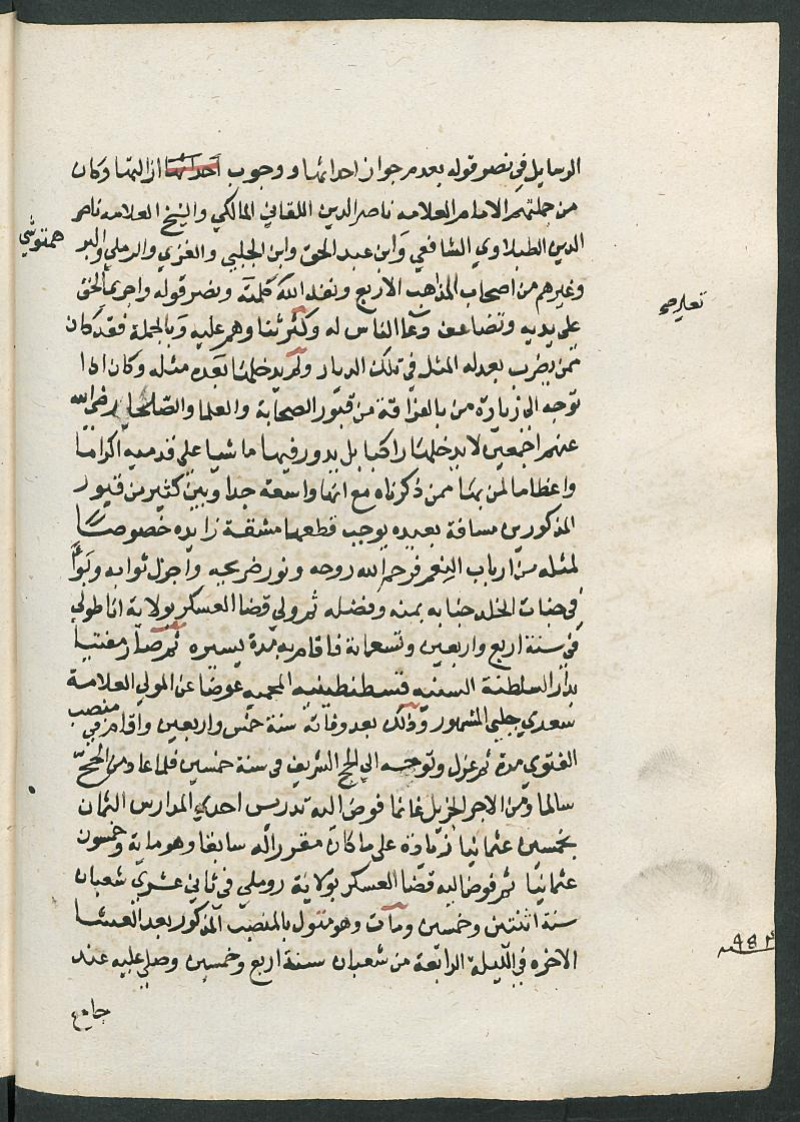 الرسايل في نصر قوله بعدم جواز احداثها ووجوب احداثها ازالتها وكان
من جملتهم الامام العلامه ناصر الدين اللقاني المالكي والشيخ العلامه ناصر
الدين الطبلاوي الشافعي وابن عبد الحق وابن الجلبي والغزي والرملي والبر
همتوشي
وغيرهم من اصحاب المذاهب الاربع ونفذ الله كلمته ونصر قوله واجري الحق
على يديه وتضاعف دعا الناس له وكثر ثناوهم عليه وبالجملة فقد كان
ممن يضرب بعدله المثل في تلك الديار ولم يدخلها بعده مثله وكان اذا
توجه الى زيارة من بالقرافة من قبور الصحابة والعلما والصلحا رضي الله
عنهم اجمعين لا يدخلها راكبا بل يدور فيها ماشيا على قدميه اكراما
واعظاما لمن بها ممن ذكرناه مع انها واسعة جدا وبين كثير من قبور
المذكورين مسافة بعيده يوجب قطعها مشقة زايده خصوصا
لمثله من ارباب النعم فرحم الله روحه ونور ضريحه واجزل ثوابه وبوأ
في جنات الخلد جنابه بمنه وفضله ثم ولي قضا العسكر بولاية اناطولي
في سنة اربع واربعين وتسعماية فاقام به مدة يسيره ثم صار مفتيا
بدار السلطنة السنيه قسطنطينيه المحميه عوضا عن المولى العلامة
سعدي جلبي المشهور وذلك بعد وفاته سنة خمس واربعين واقام في منصب
الفتوى مدة ثم عزل وتوجه الى الحج الشريف في سنة خمسين فلما عاد من الحج
سالما ومن الاجر الجزيل غانما فوض اليه تدريس احدي المدارس الثمان
بخمسين عثمانيا زيادة على ما كان مقررا له سابقا وهو ماية وخمسون
عثمانيا ثم فوض اليه قضا العسكر بولاية روملي في ثاني عشري شعبان
سنة اثنتين وخمسين ومات وهو متول بالمنصب المذكور بعد العشا
الاخره في الليلة الرابعة من شعبان سنة اربع وخمسين وصلي عليه عند
جامع